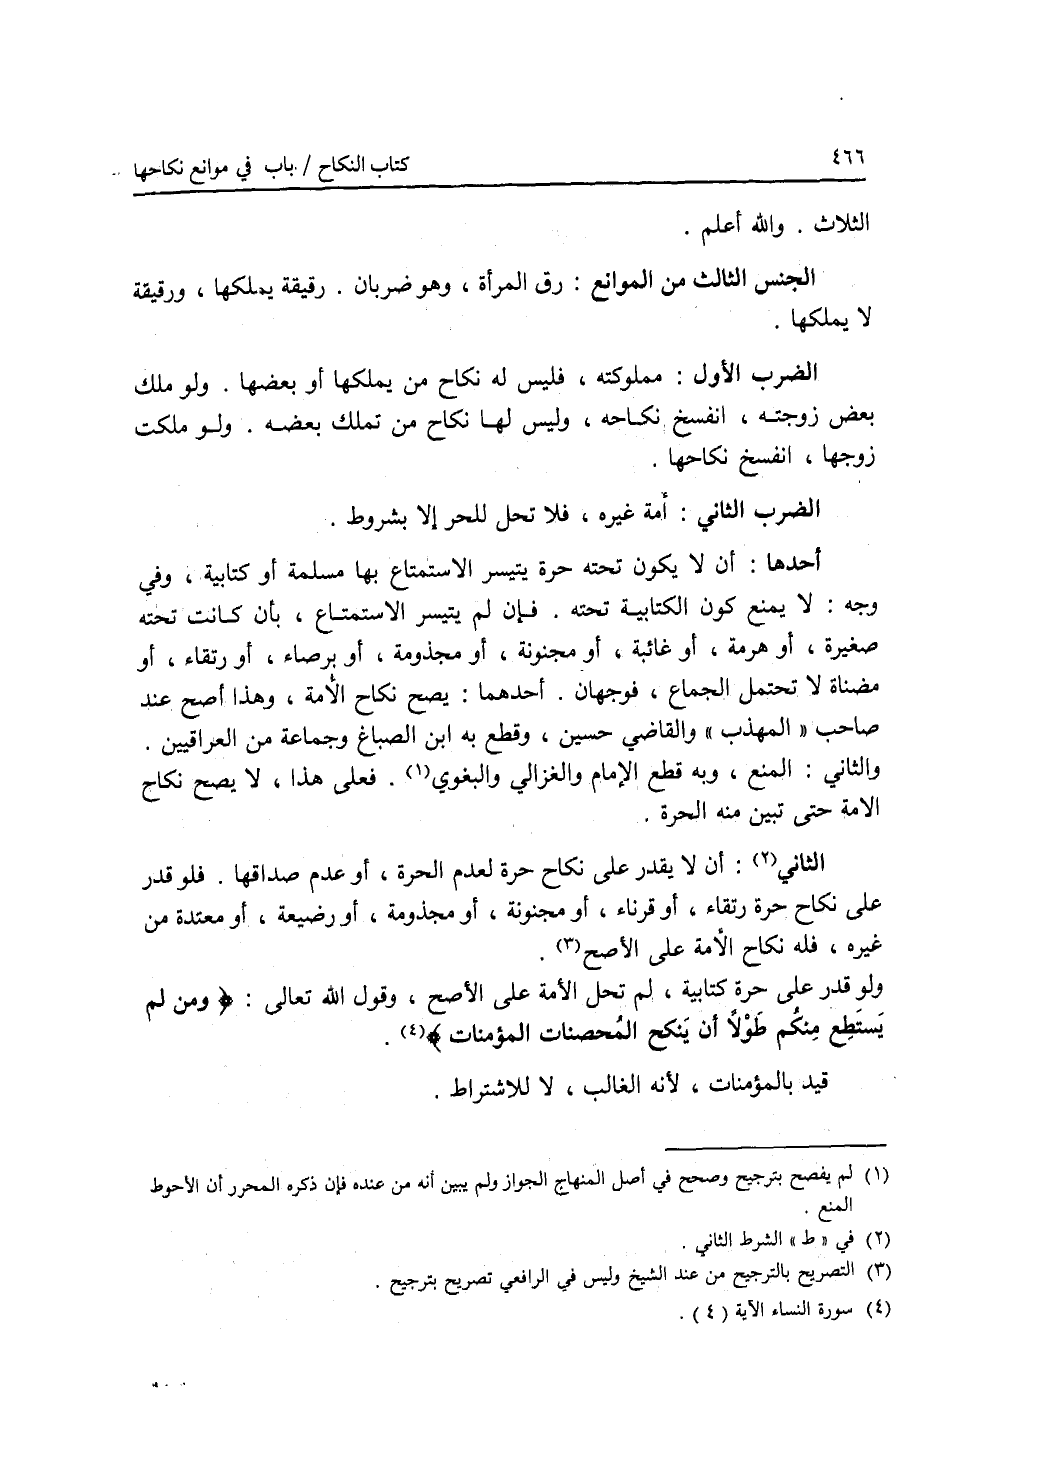 ٤٦٦
كتاب النكاح / باب في موانع نكاحها
الثلاث . والله أعلم .
الجنس الثالث من الموانع : رق المرأة ، وهو ضربان . رقيقة يملكها ، ورقيقة
لا يملكها .
الضرب الأول : مملوكته ، فليس له نكاح من يملكها أو بعضها . ولو ملك
بعض زوجته ، انفسخ نكاحه ، وليس لها نكاح من تملك بعضه . ولو ملكت
زوجها ، انفسخ نكاحها .
الضرب الثاني : أمة غيره ، فلا تحل للحر إلا بشروط .
أحدها : أن لا يكون تحته حرة يتيسر الاستمتاع بها مسلمة أو كتابية ، وفي
وجه : لا يمنع كون الكتابية تحته . فإن لم يتيسر الاستمتاع ، بأن كانت تحته
صغيرة ، أو هرمة ، أو غائبة ، أو مجنونة ، أو مجذومة ، أو برصاء ، أو رتقاء ، أو
مضناة لا تحتمل الجماع ، فوجهان . أحدهما : يصح نكاح الأمة ، وهذا أصح عند
صاحب « المهذب » والقاضي حسين ، وقطع به ابن الصباغ وجماعة من العراقيين .
والثاني : المنع ، وبه قطع الإمام والغزالي والبغوي(١) . فعلى هذا ، لا يصح نكاح
الامة حتى تبين منه الحرة .
الثاني(٢) : أن لا يقدر على نكاح حرة لعدم الحرة ، أو عدم صداقها . فلو قدر
على نكاح حرة رتقاء ، أو قرناء ، أو مجنونة ، أو مجذومة ، أو رضيعة ، أو معتدة من
غيره ، فله نكاح الأمة على الأصح(٣) .
ولو قدر على حرة كتابية ، لم تحل الأمة على الأصح ، وقول الله تعالى : ﴿ ومن لم
يَستَطِع مِنكُم طَوْلاً أن يَنكح المُحصنات المؤمنات ﴾(٤) .
قيد بالمؤمنات ، لأنه الغالب ، لا للاشتراط .
(١) لم يفصح بترجيح وصحح في أصل المنهاج الجواز ولم يبين أنه من عنده فإن ذكره المحرر أن الأحوط
المنع .
(٢) في « ط » الشرط الثاني .
(٣) التصريح بالترجيح من عند الشيخ وليس في الرافعي تصريح بترجيح .
(٤) سورة النساء الآية ( ٤ ) .